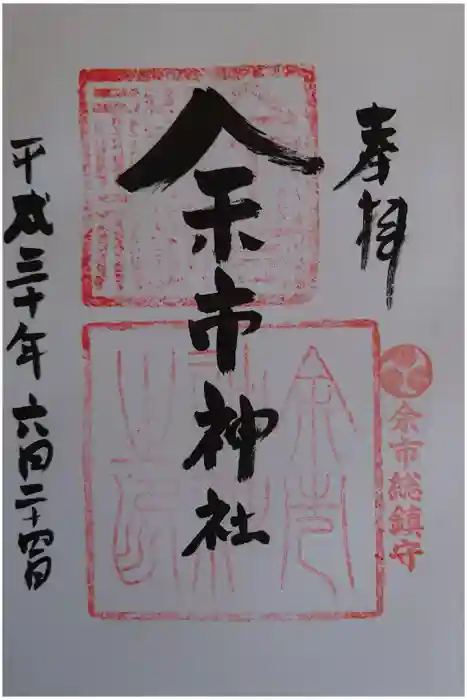 奉拝
余市総鎮守
余市神社
平成三十年六月二十四日